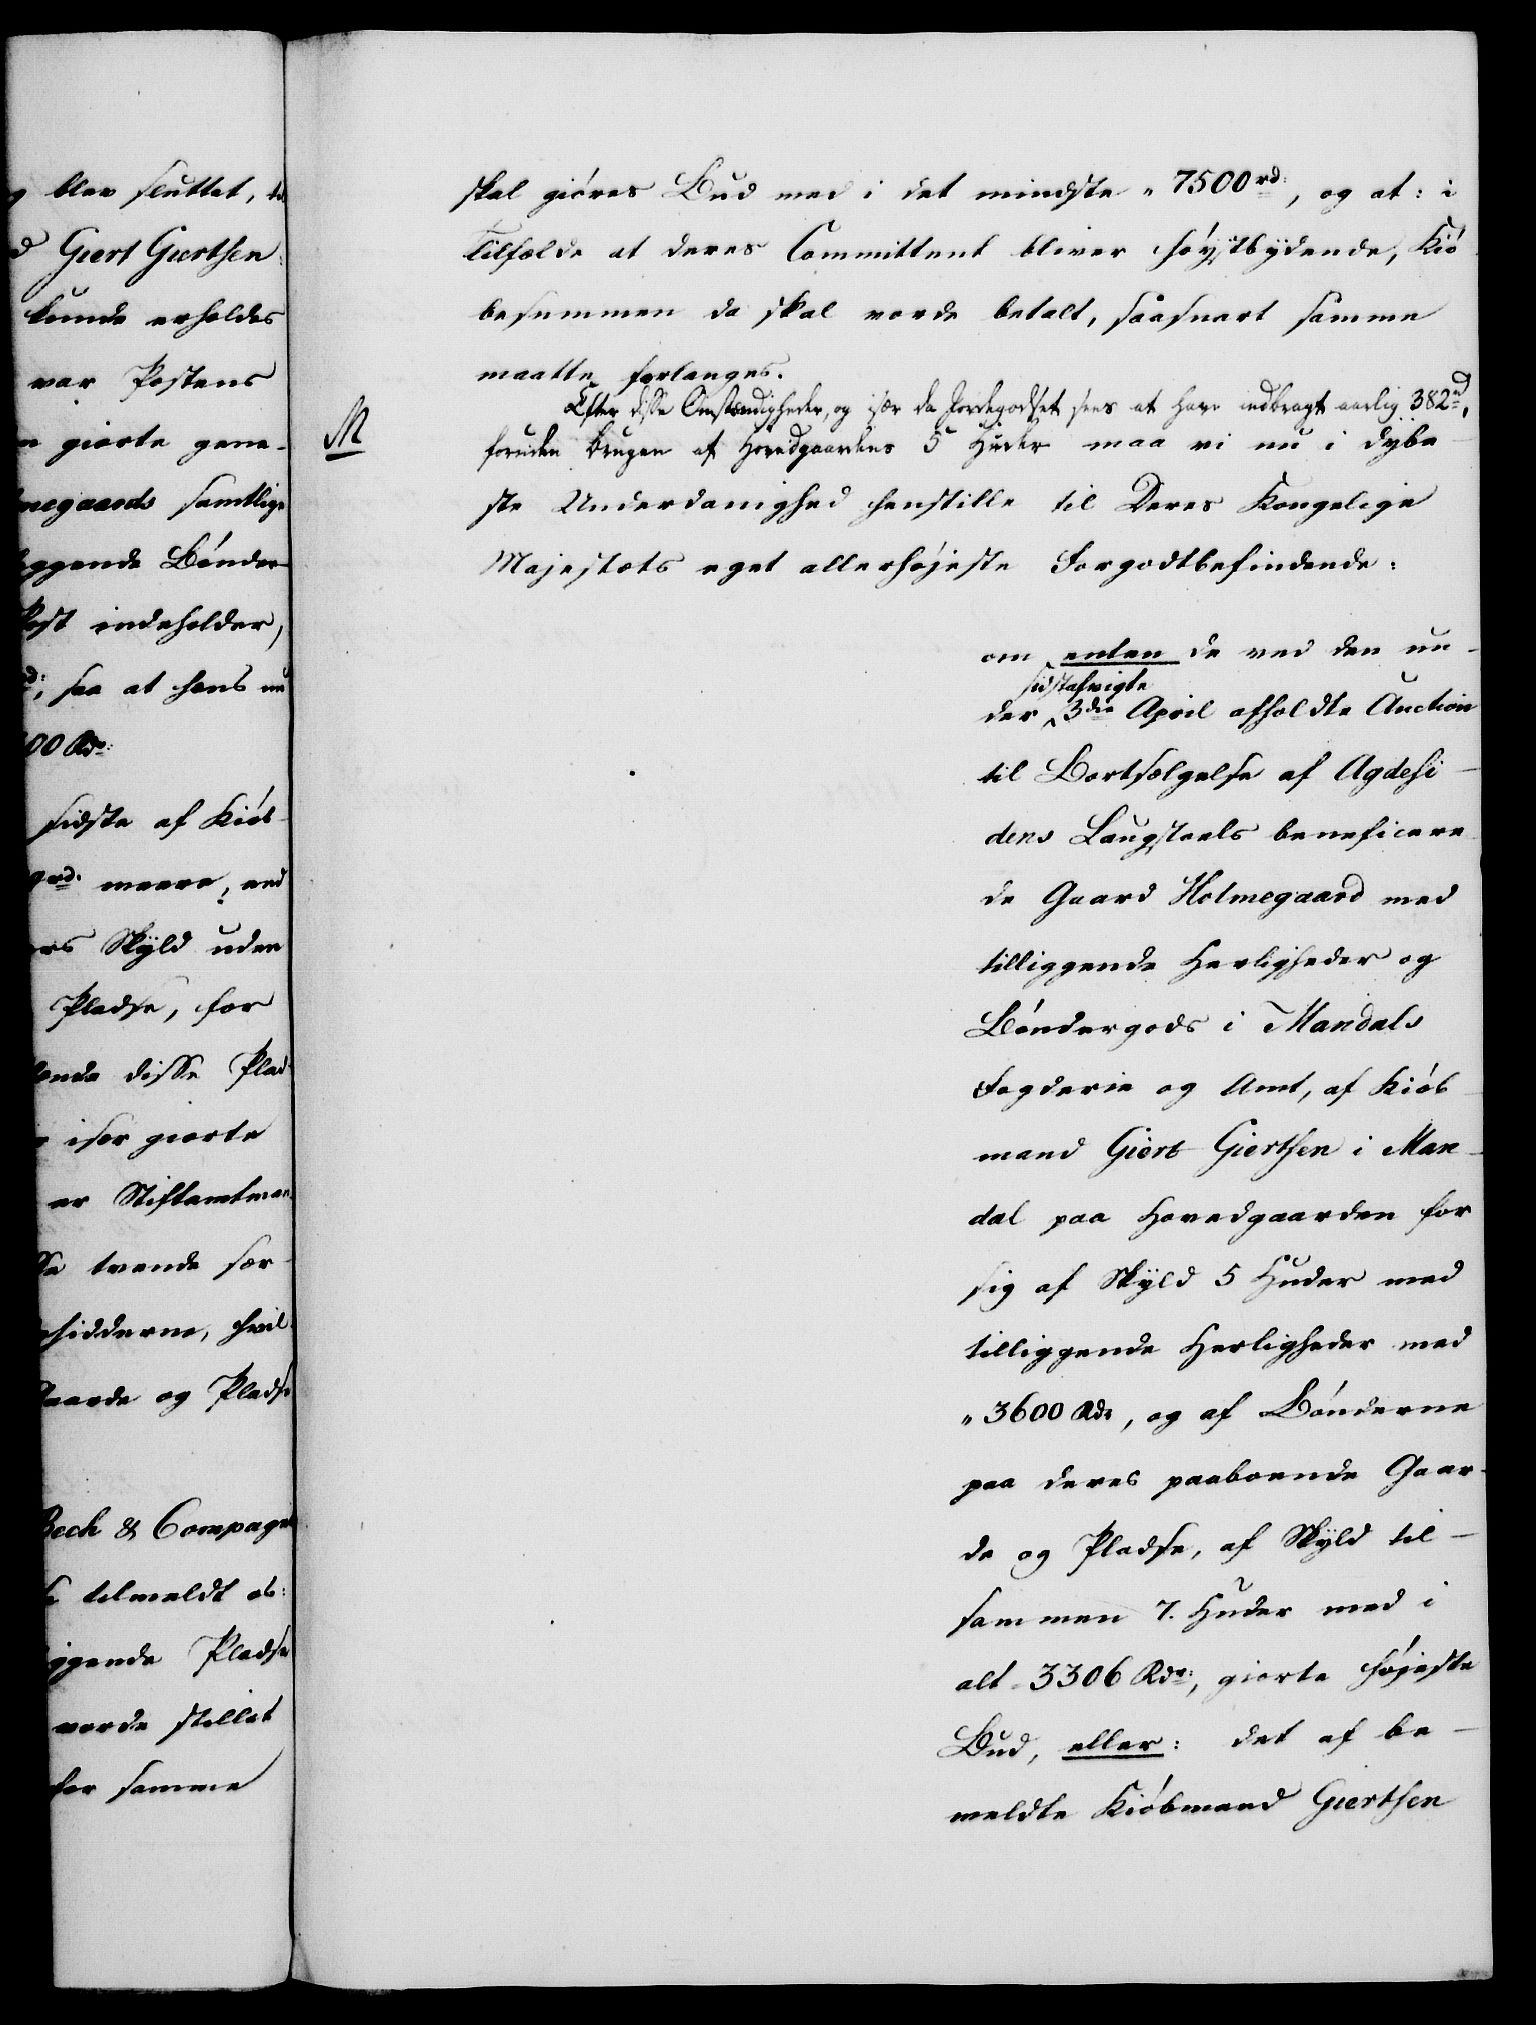 g blev sluttet,
d Giert Giertsen
kunde erholdes
var Postens
giorte gene-
megaards samtlige
ggende Bønder-
Post indeholder,
saa at hans
00 Rdr:
sidste af Kiøb-
rd. meere, end
Skyld uden
Pladse, for
disse Plad-
især giorte
er Stiftamtman-
tvende sær-
sidderne, hvil-
Gaarde og Pladse
Bech & Compagni
tilmeldt os:
ggende Pladse
vorde stillet
for samme
skal giøres Bud med i det mindste " 7500 rd:, og at: i
Tilfælde at deres Committent bliver høystbydende, Kiø-
besummen da skal vorde betalt, saasnart samme
maatte forlanges.
M
Efter disse Omstændigheder, og især da Jordegodset sees at have indbragt aarlig 382 rd,
foruden Brugen af Hovedgaardens 5 Huder maa vi nu i dybe-
ste Underdanighed henstille til Deres Kongelige
Majestæts eget allerhøjeste Forgodtbefindende:
om enten de ved den un-
sidstafvigte
der 3die April afholdte Auction
til Bortsælgelse af Agdesi-
dens Laugstoels beneficere-
de Gaard Holmegaard med
tilliggende Herligheder og
Bøndergods i Mandals
Fogderie og Amt, af Kiøb-
mand Giert Giertsen i Man-
dal paa Hovedgaarden for
sig af Skyld 5 Huder med
tilliggende Herligheder med
" 3600 Rdr, og af Bønderne
paa deres paaboende Gaar-
de og Pladse, af Skyld til-
sammen 7. Huder med i
alt " 3306 Rdr:, giorte højeste
Bud, eller: det af be-
meldte Kiøbmand Giertsen